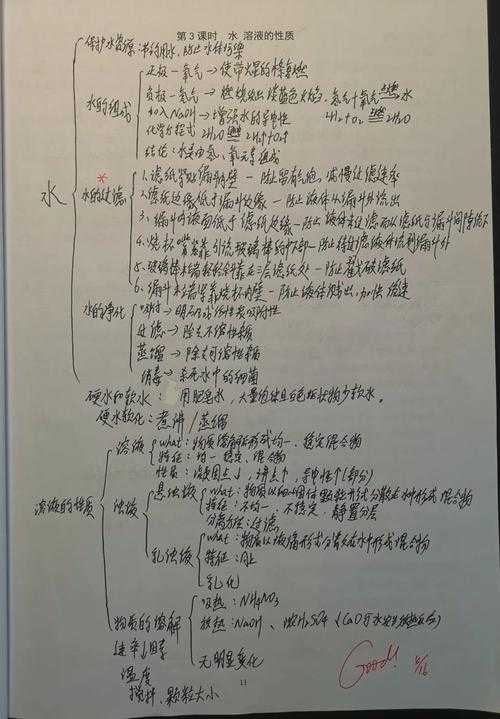 第 3 课时 水 溶液的性质
保护水资源:节约用水,防止水体污染
水的组成
正极-氧气→使带火星的木条复燃
负极-氢气→燃烧,淡蓝色火焰,氢气+氧气 点燃 水
加入NaOH→增强水的导电性 2H₂+O₂ 点燃 2H₂O
化学方程式 2H₂O 通电 2H₂↑+O₂↑
结论:水是由氢、氧元素组成
水
*
水的过滤
1.滤纸紧贴漏斗内壁-防止留有气泡,减慢过滤速率
2.滤纸边缘低于漏斗边缘-防止液体从漏斗外流出
3.漏斗内液面低于滤纸边缘-防止液体未过滤而从滤纸与漏斗间隙流下
4.烧杯嘴紧靠引流玻璃棒的中部-防止待过滤液体流到漏斗外
5.玻璃棒末端轻轻斜靠在三层滤纸处-防止戳破滤纸
6.漏斗末端紧靠烧杯内壁-防止液体溅出,加快滤速
水的净化
吸附→明矾
过滤→除去不溶性杂质
蒸馏→除去可溶性杂质
消毒→杀死水中的细菌
硬水和软水: 用肥皂水,大量
硬水软化:煮沸/蒸馏
溶液的性质
溶液
what:物质溶解后形成均一、稳定混合物
特征:均一、稳定、混合物
性质:凝固点↓,沸点↑,导电性↑(部分)
浊液
悬浊液
what:物质以细小固体颗粒形式分散在水中形成混合物
特征:不均一、不稳定、静置分层
分离方法:过滤
乳浊液
what:物质以液滴形式分散在水中形成混合物
特征:同上
乳化
物质的溶解
吸热:NH₄NO₃
放热:NaOH、浓H₂SO₄ (CaO与水发生放热反应)
无明显变化
速率
温度
搅拌、颗粒大小
Good!
11